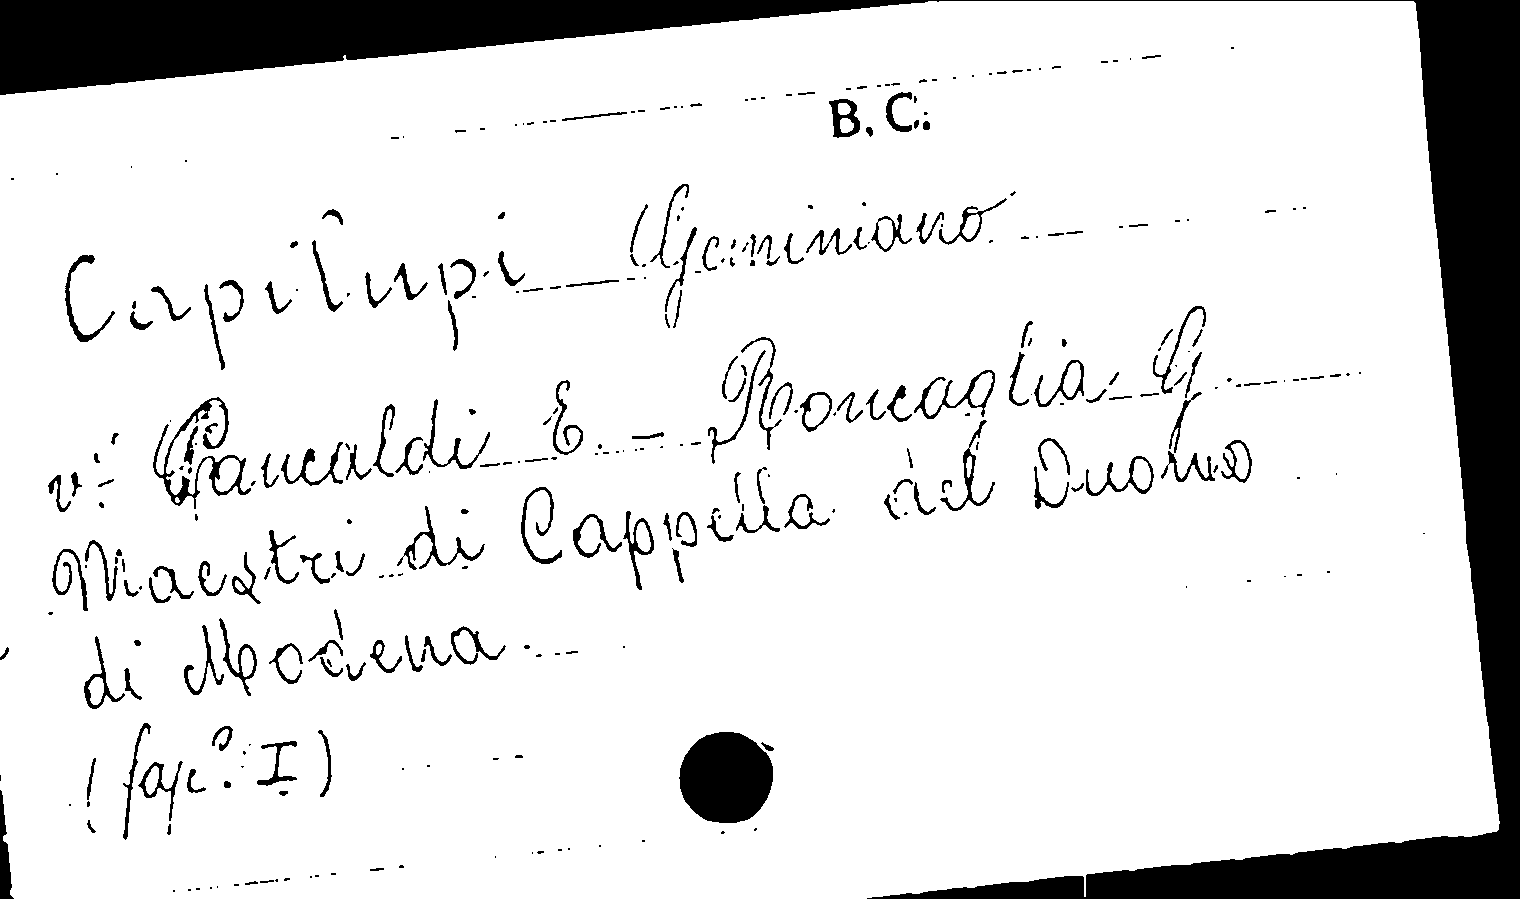 B. C.
Capilupi Geminiano
v: Pancaldi E. - Roncaglia G.
Maestri di Cappella del Duomo
di Modena.
(fasc? I)